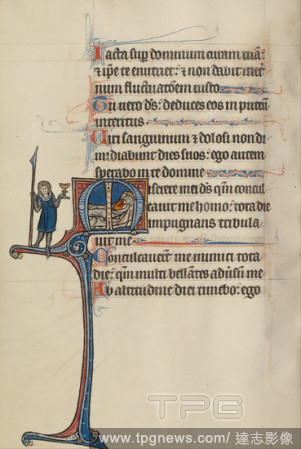 Iacta sup dominum curam tuā:
& ipe te enutriet: & non dabit in et
num fluctuatōem iusto
Tu vero ds: deduces eos in puteū
interitus
Uiri sanguinum & dolosi non di
midiabunt dies suos: ego autem
sperabo in te domine
Miserere mei ds qm concul
cauit me homo: tota die
impugnans tribula
uit me
Conculcauerūt me inimici tota
die: qm multi bellantes aduersū me
Ab altitudine diei timebo: ego
TPG
www.tpgnews.com/ 達志影像